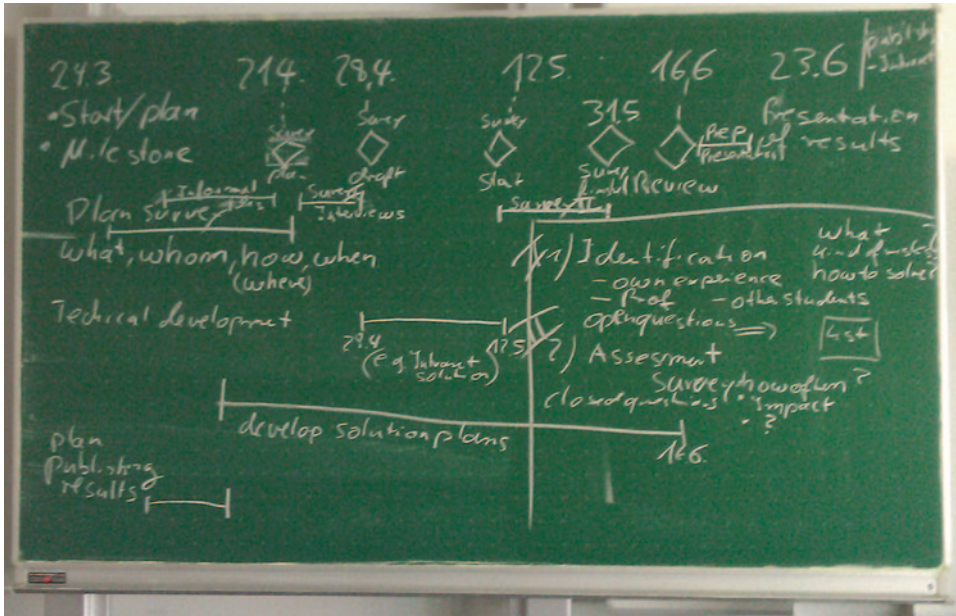 24.3. 21.4. 28.4. 12.5. 16.6 23.6
• Start/plan
• Milestone
Survey plan
Survey draft
Survey Start
31.5
Survey
Review
Prep Presentation
Presentation of results
Plan survey
Informal
Survey Interviews
Survey II
what, whom, how, when
(where)
Techical development
28.4 12.5
(e.g. Intranet solution)
develop solution plans
16.6.
plan
publishing
results
1) Identification
- own experience
- Prof - other students
open questions ⇒ list
what
kind of
how to solve?
2) Assesment
Survey how often?
closed questions • Impact
• ?